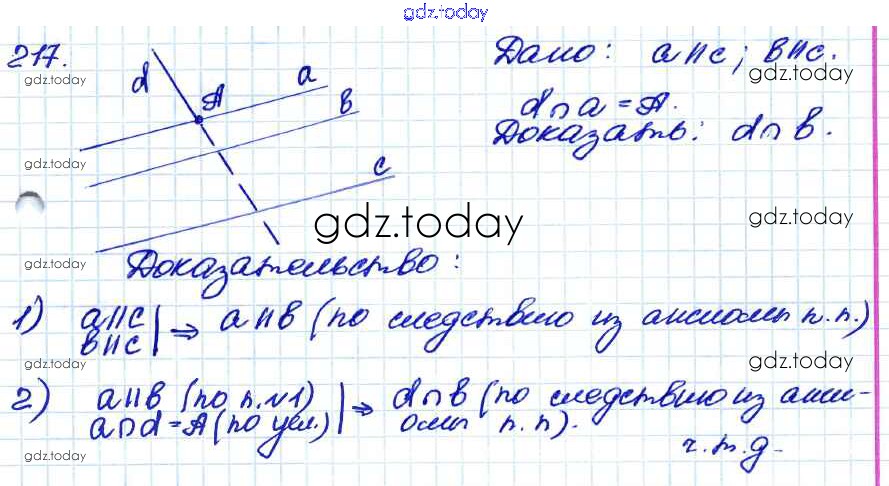 gdz.today
217.
gdz.today
d
a
A
b
c
Дано: a II c; b II c.
gdz.today
d ∩ a = A.
Доказать: d ∩ b.
gdz.today
gdz.today
gdz.today
gdz.today
Доказательство:
1) a II c
b II c | ⇒ a II b (по следствию из аксиомы п.п.)
gdz.today
gdz.today
2) a II b (по п.№1)
a ∩ d = A (по усл.) | ⇒ d ∩ b (по следствию из акси-
омы п.п).
gdz.today
ч.т.д.